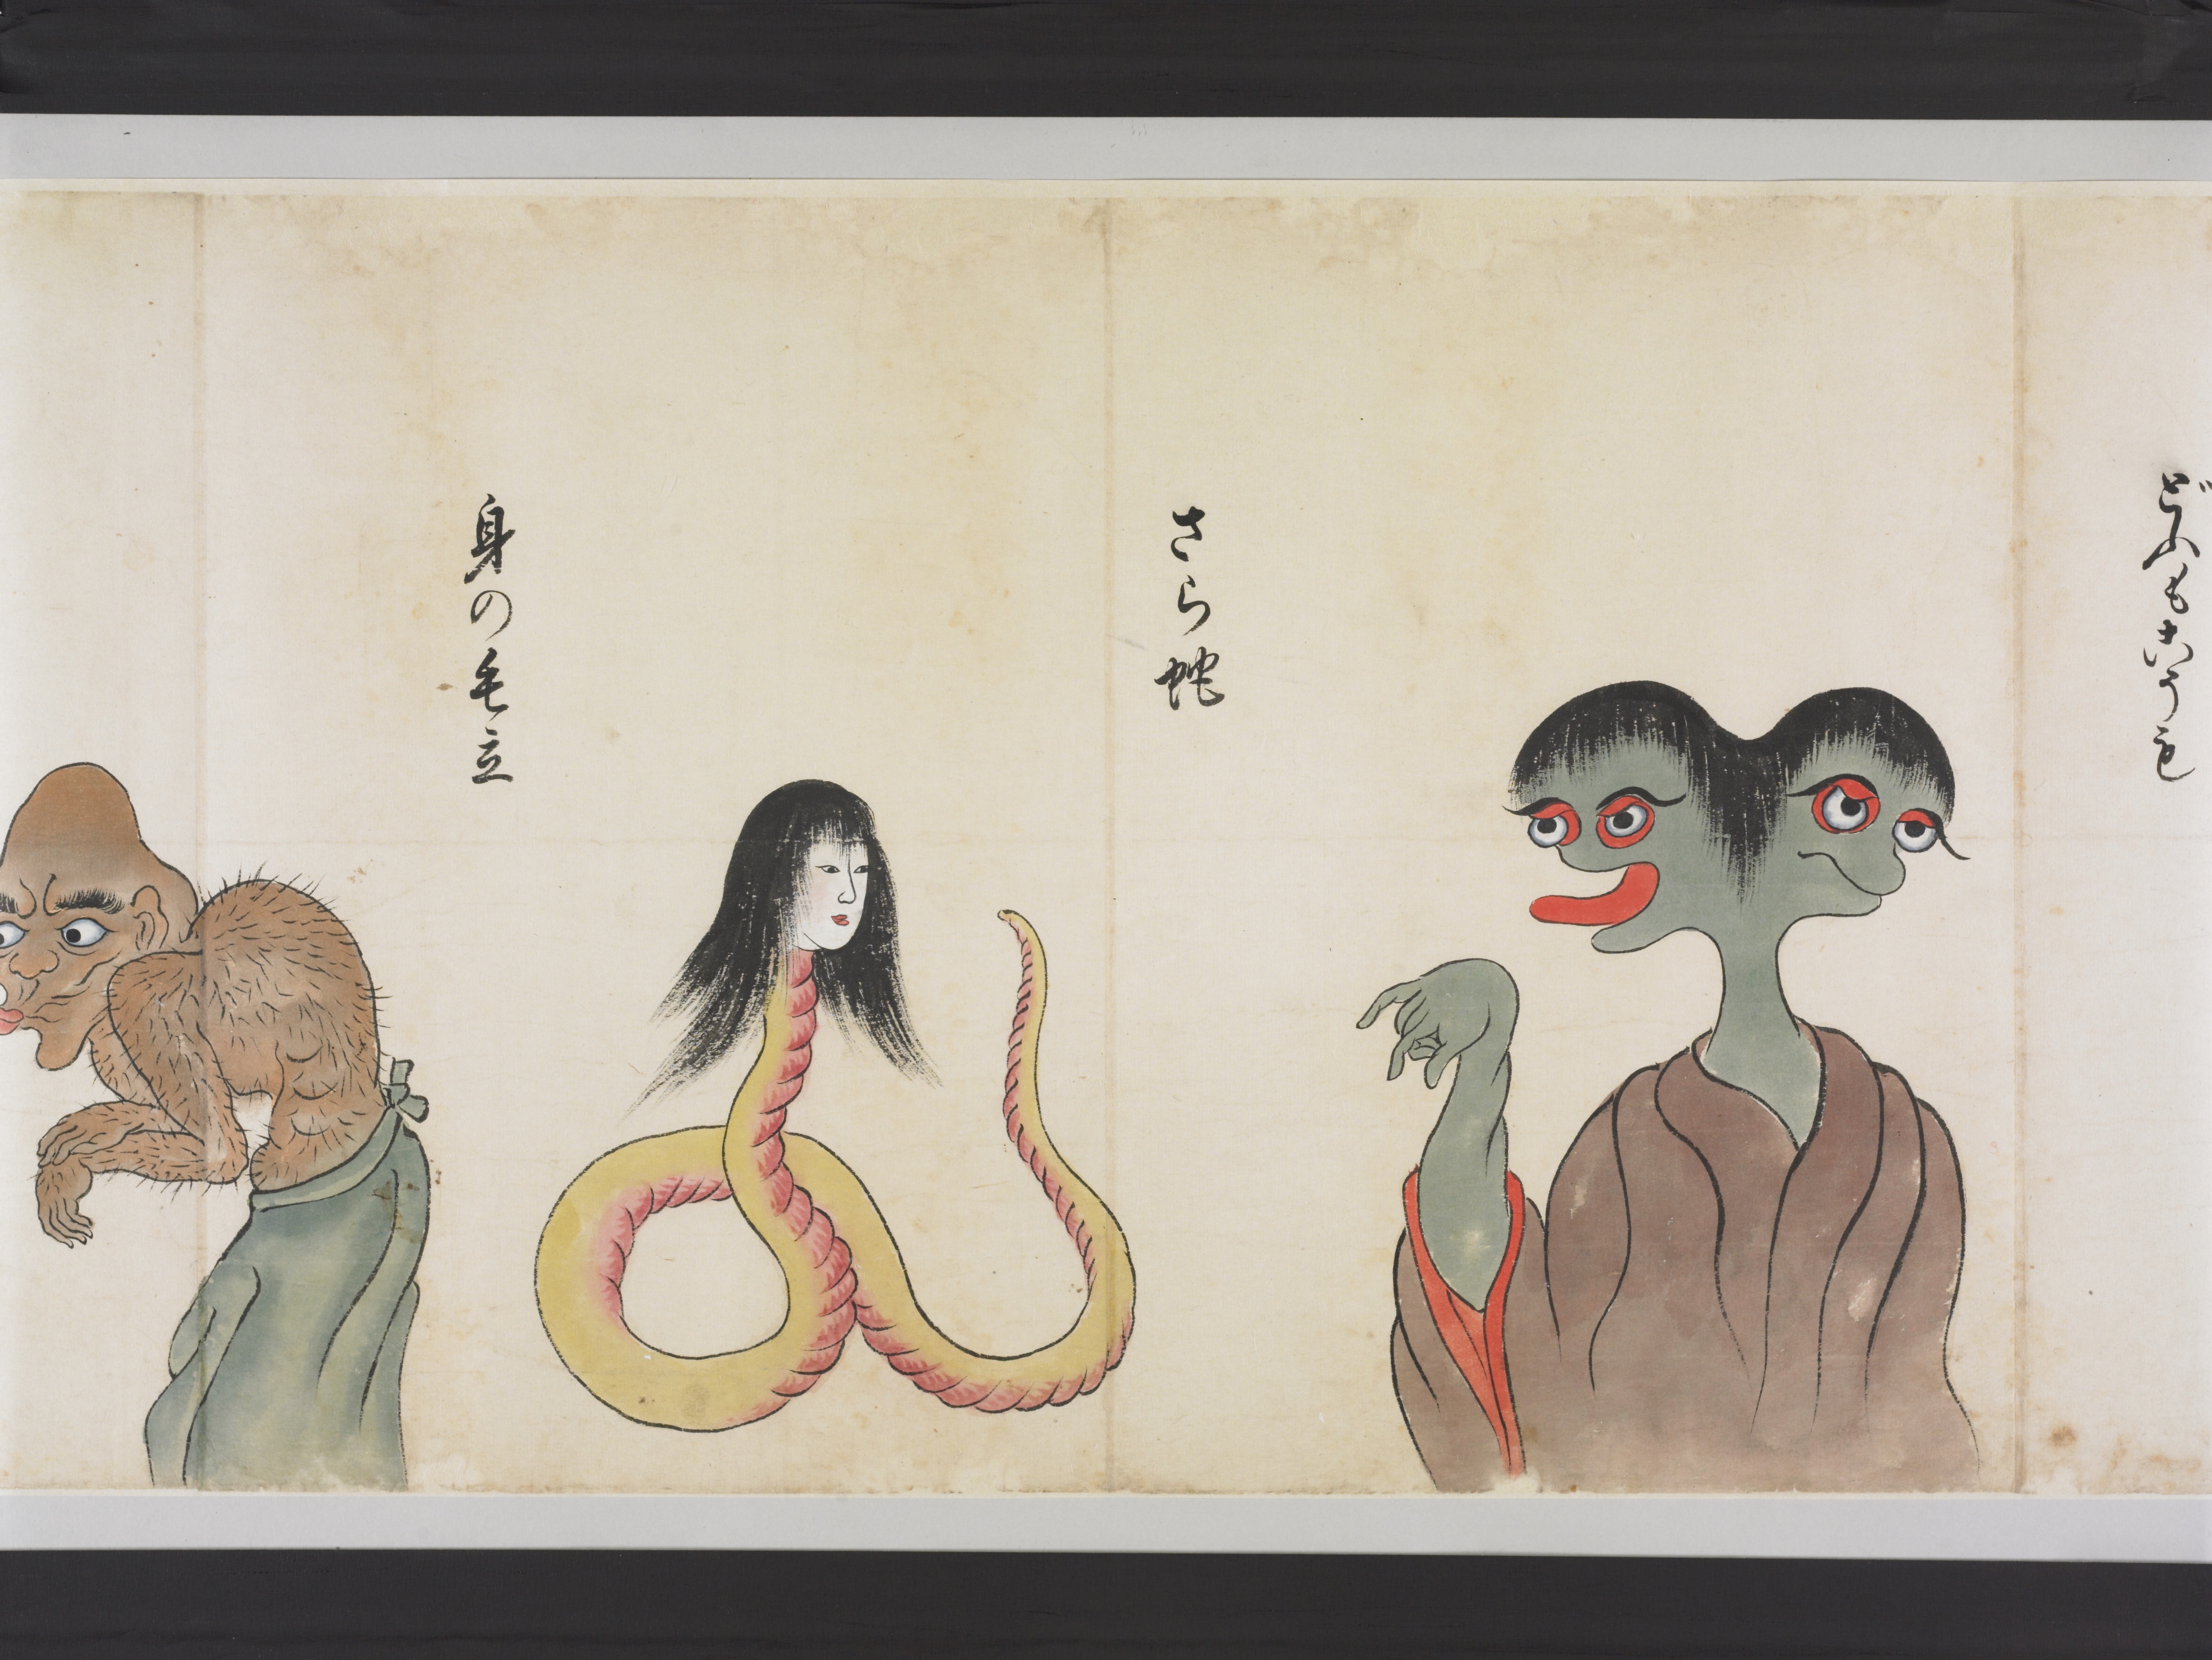 どふもこうも
さら蛇
身の毛立